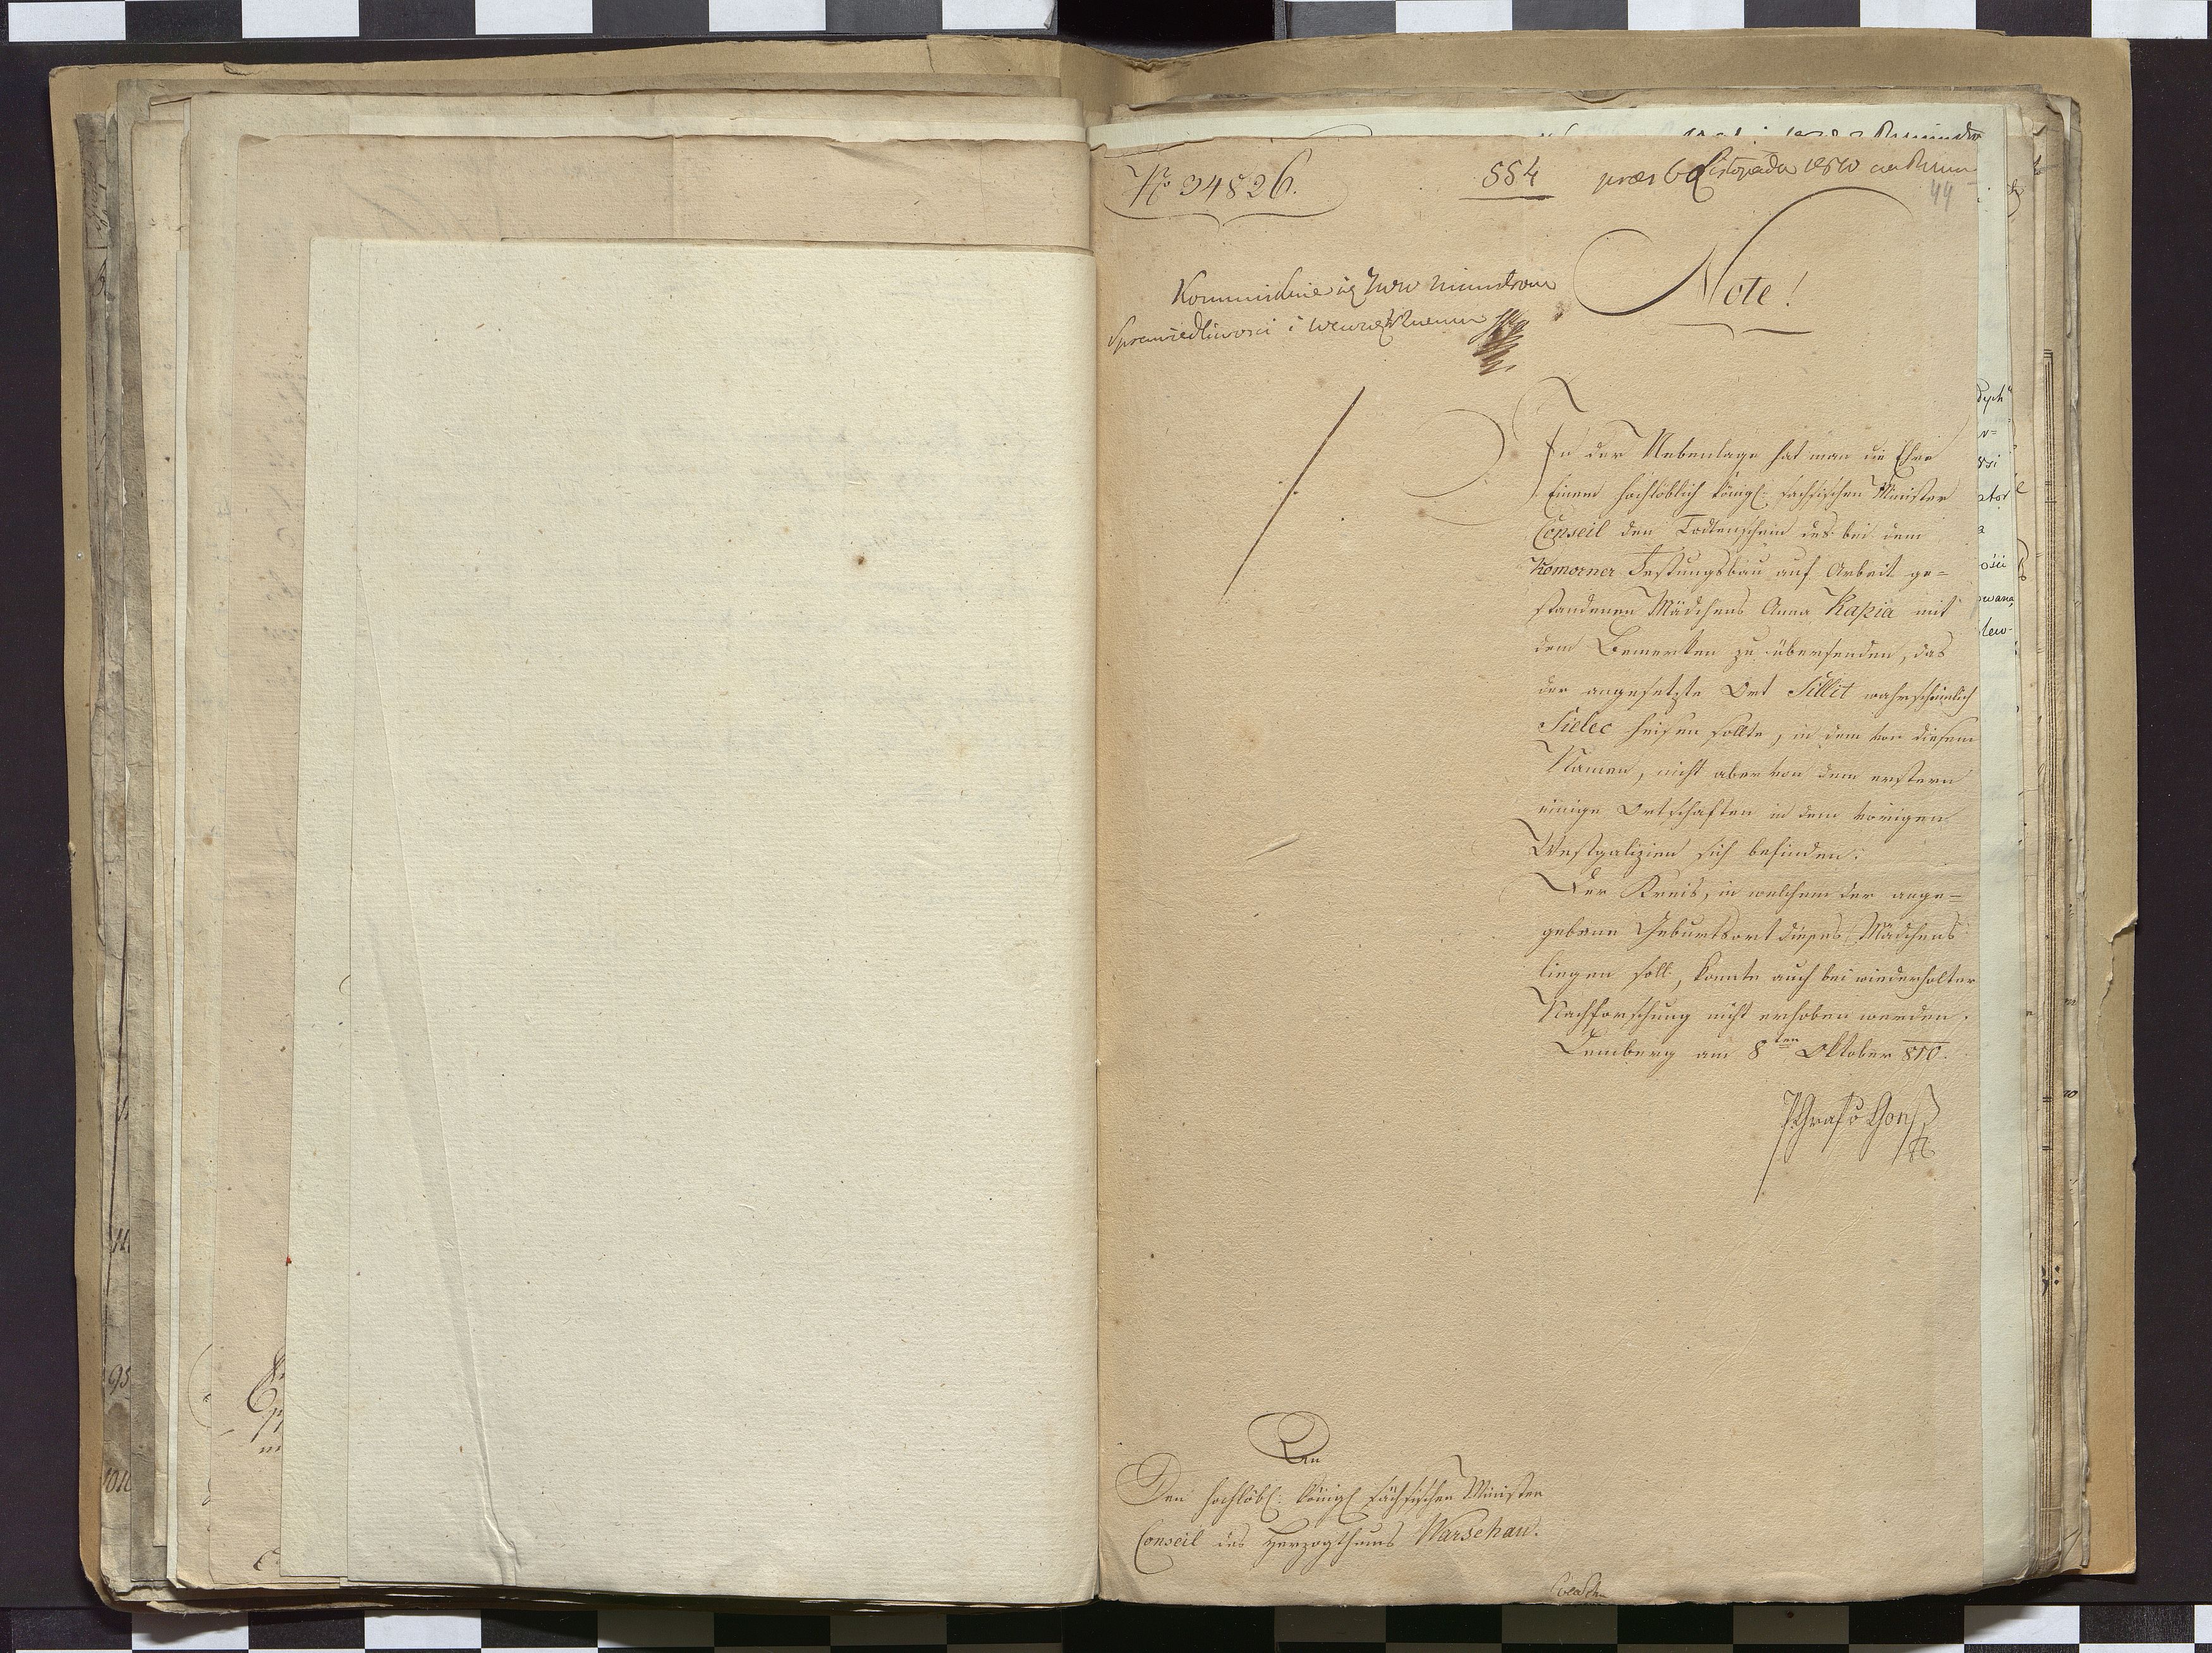 No 34826.
554
præs 6 Listopada 1810
44
Note!
Sprawiedliwosci i
In der Nebenlage hat man die Ehre
Einem hochlöblich königl: sachsischen Minister
Conseil den Todtenschein des bei dem
Komorner Festungsbau auf Arbeit ge=
standenen Mädchens Anna Kapia mit
dem Bemerken zu übersenden, das
der angesetzte Ort Sillit wahrscheinlich
Sielec heisen sollte, in dem von diesem
Namen, nicht aber von dem erstern
einige Ortschaften in dem vorigen
Westgalizien sich befinden.
Der Kreis, in welchem der ange=
gebene Geburtsort dieses Mädchens
liegen soll, konnte auch bei wiederholter
Nachforschung nicht erhoben werden.
Lemberg am 8ten Oktober 810.
An
Den hochlöbl: königl sächsischen Minister
Conseil des Herzogthums Warschau.